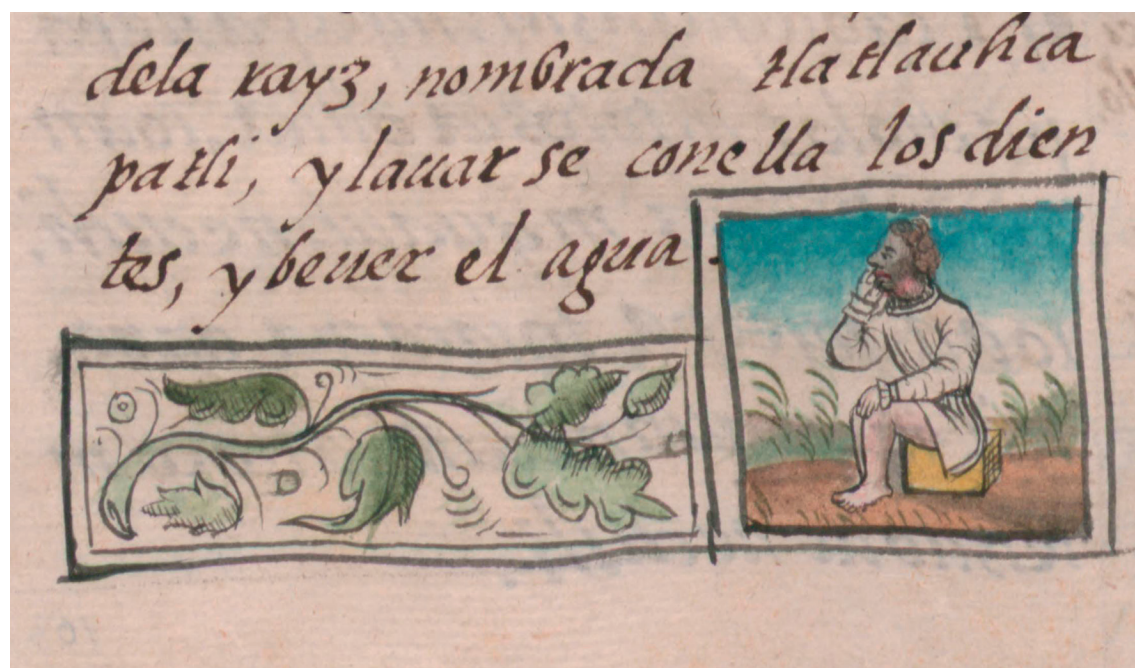 dela rayz, nombrada tlatlauhca
patli, ylauar se conella los dien
tes, ybeuer el agua.